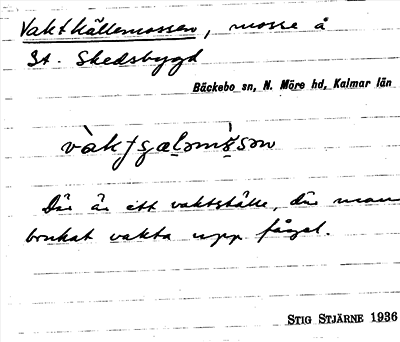 Vaktkällemossen, mosse å
St. Skedsbygd
Bäckebo sn, N. Möre hd, Kalmar län
Där är ett vaktställe, där man
brukat vakta upp fågel.
STIG STJÄRNE 1936